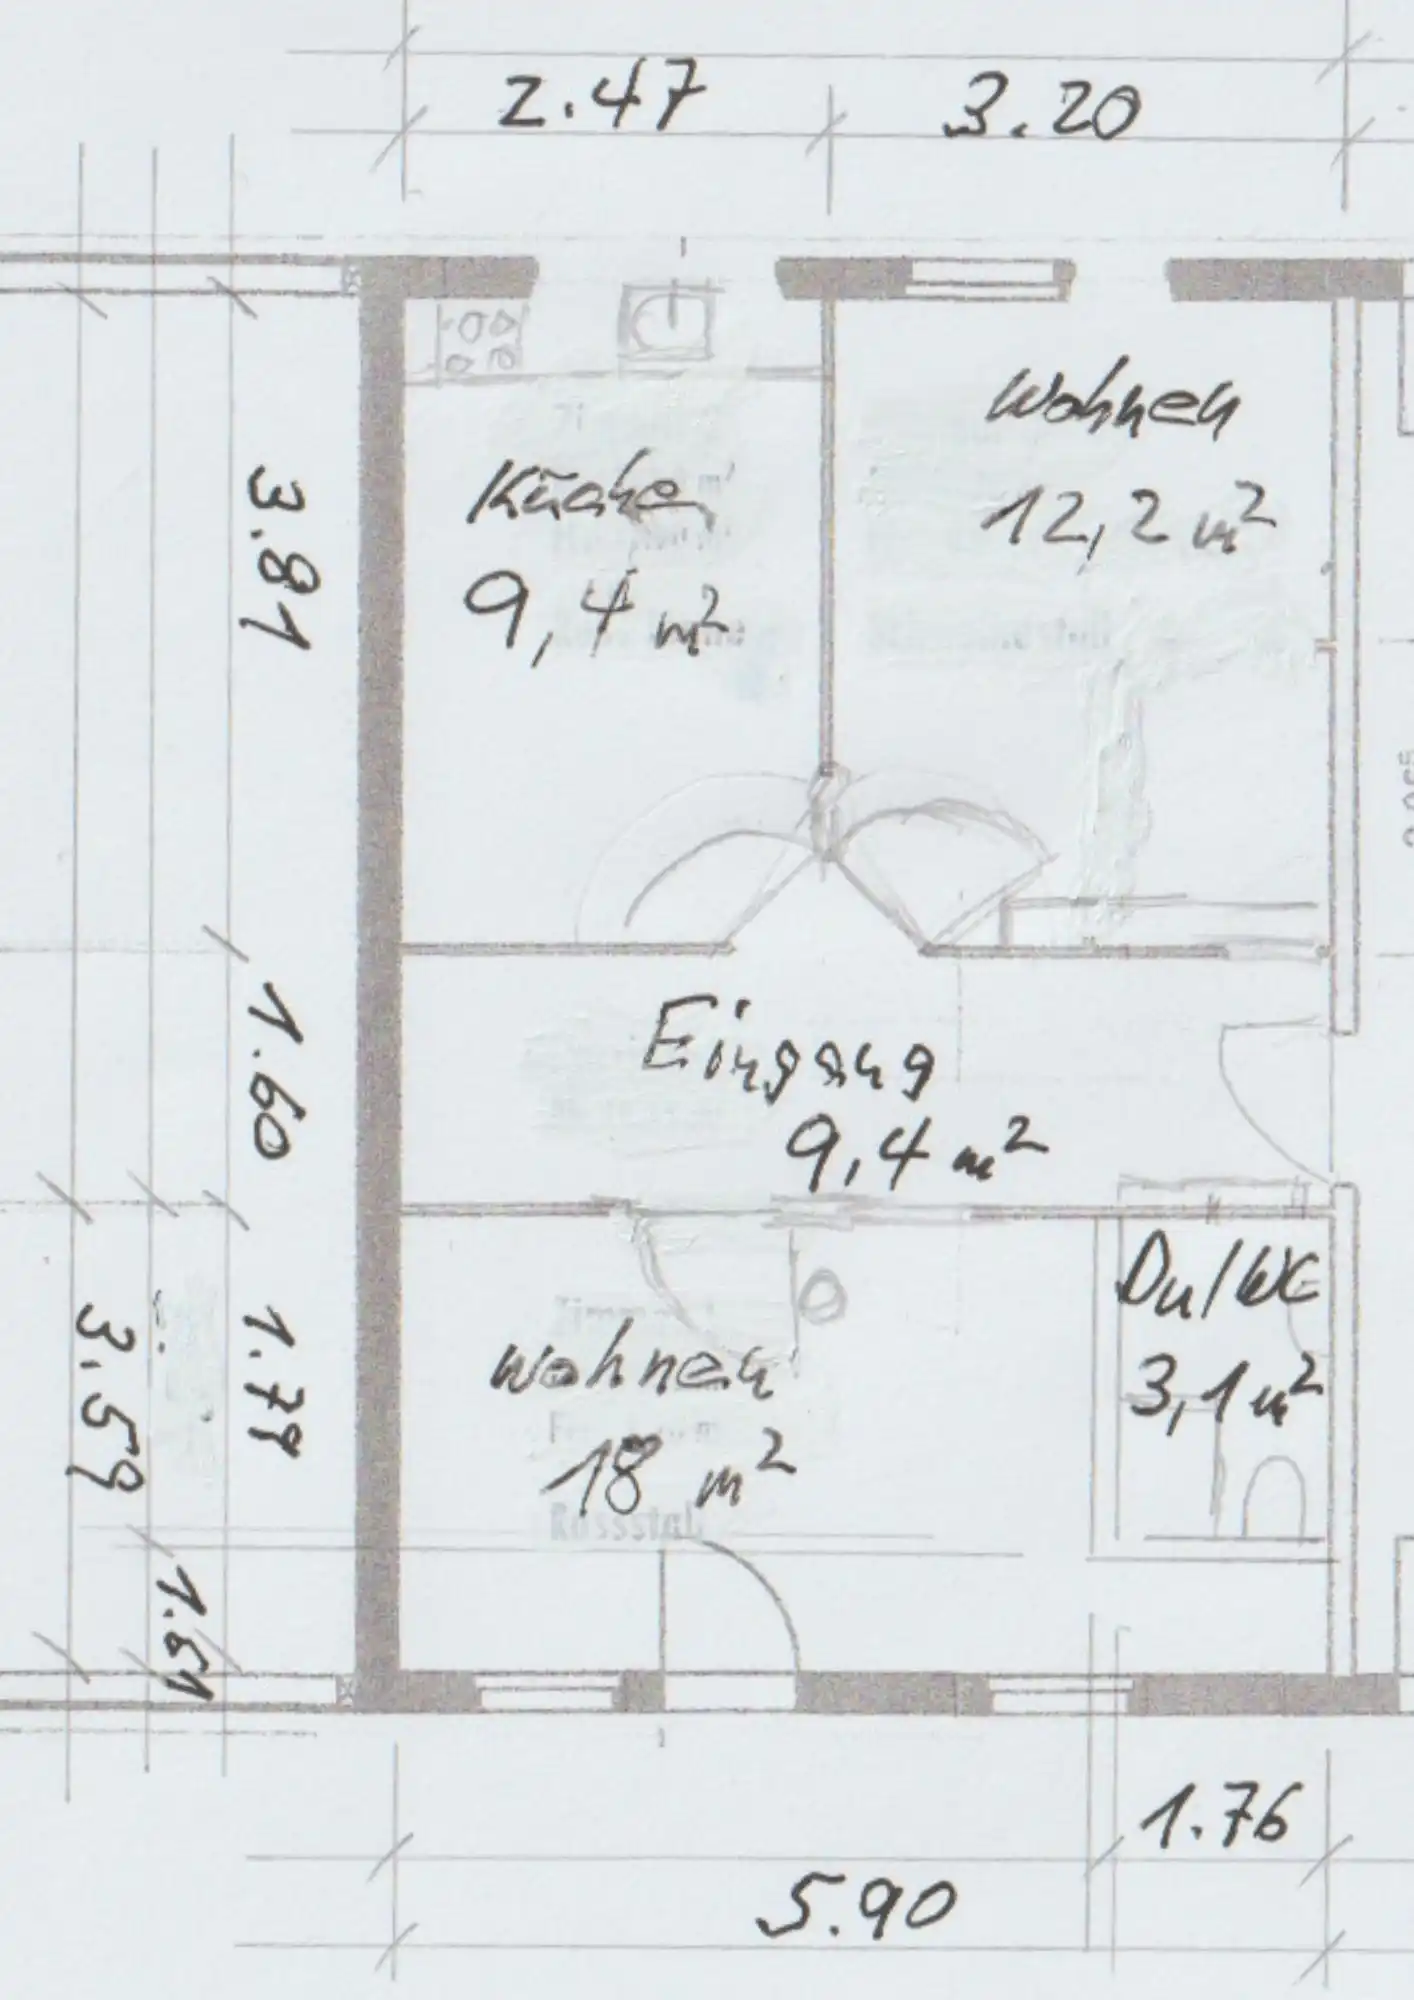 2.47
3.20
Wohnen
12,2 m²
Küche
9,4 m²
3.81
Eingang
9,4 m²
1.60
Du/WC
3,1 m²
1.79
3.59
wohnen
18 m²
Rossstall
1.61
1.76
5.90